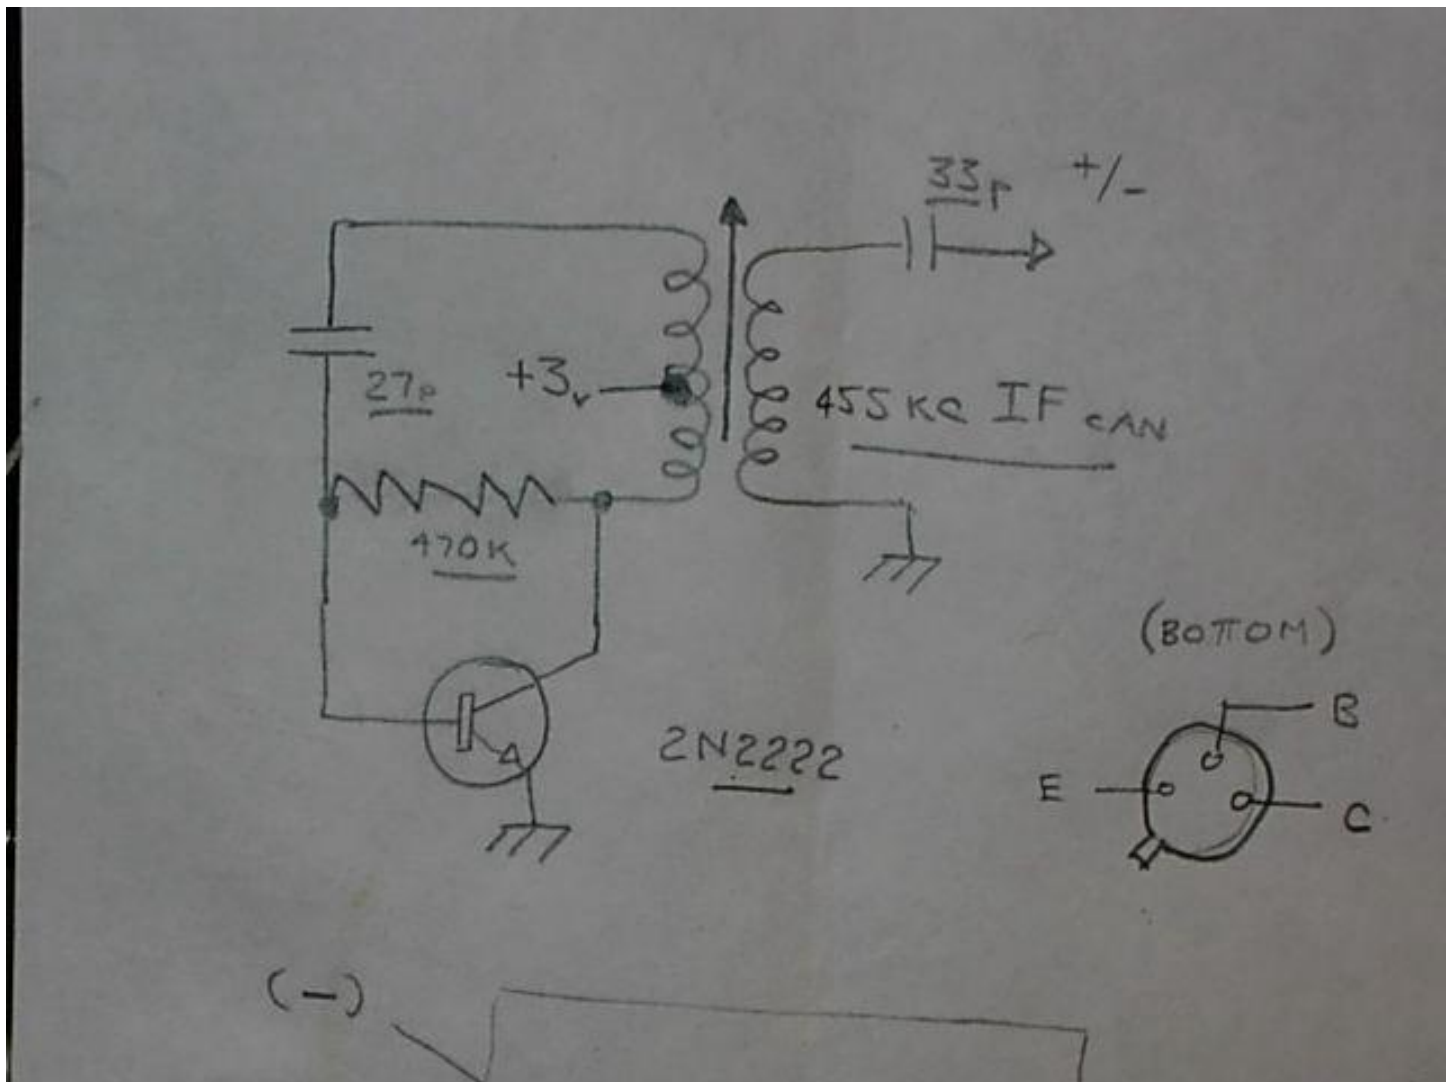 33p +/-
27p
+3v
455 KC IF CAN
470K
(BOTTOM)
B
2N2222
E
C
(-)